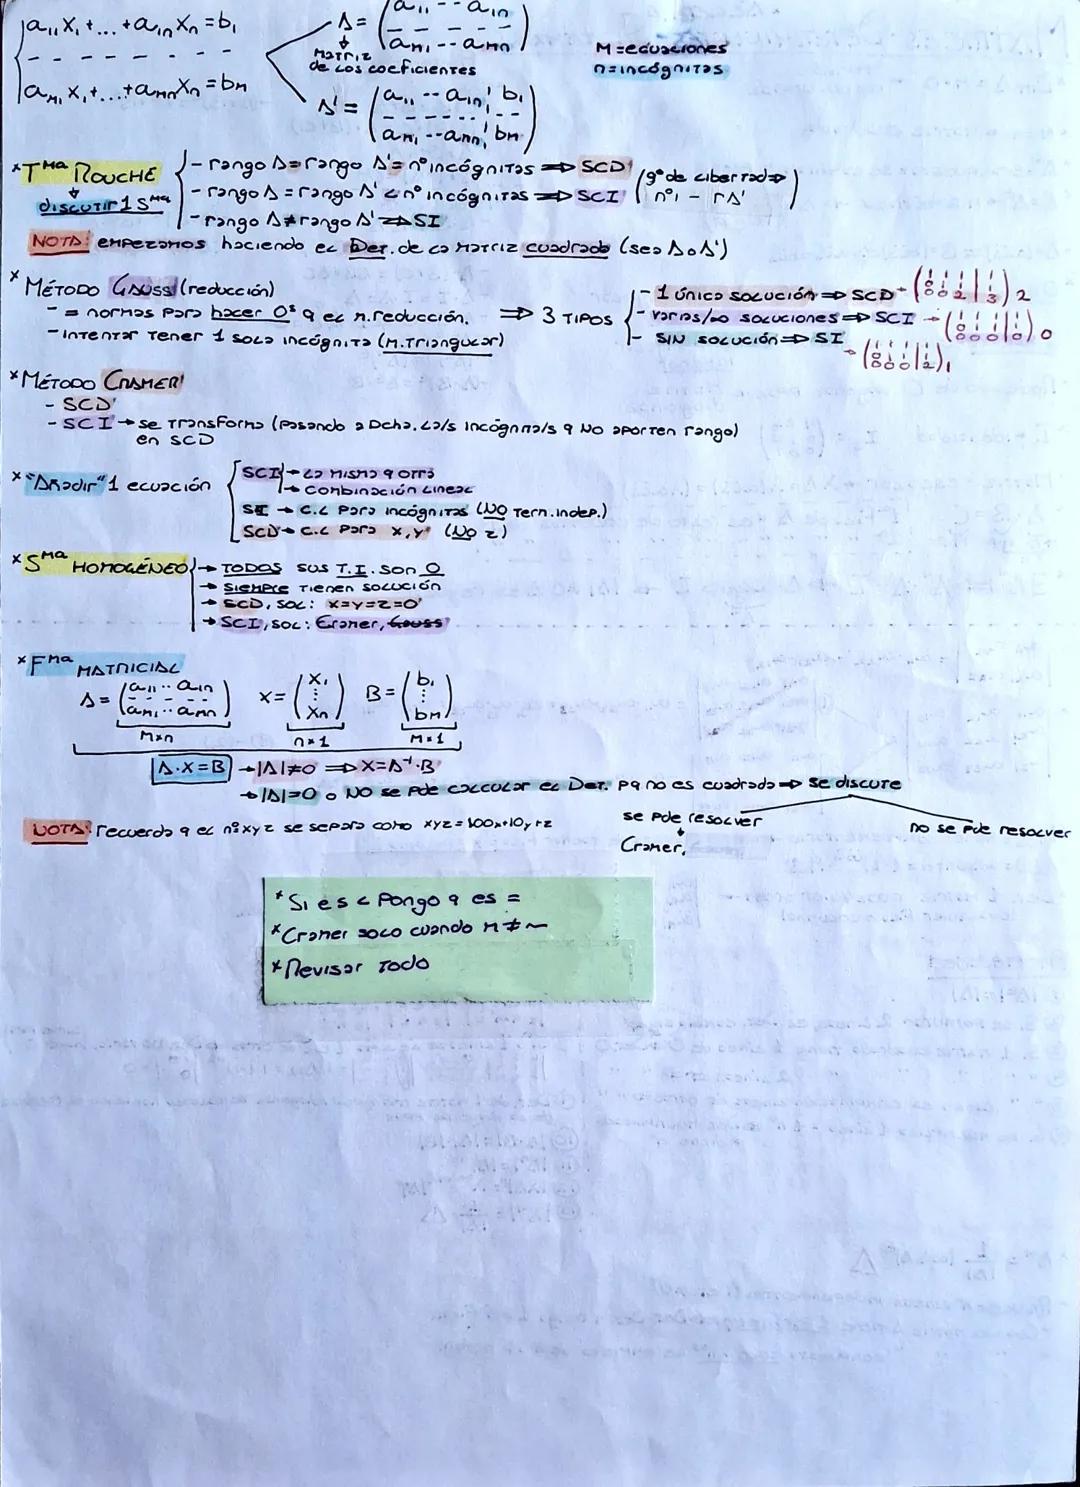 a₁₁X₁+...+a₁ₙXₙ=b₁
aₘ₁X₁+...+aₘₙXₙ=bₘ
A= (a₁₁ -- a₁ₙ
aₘ₁ -- aₘₙ)
Matriz
de los coeficientes
A'= (a₁₁ -- a₁ₙ ¦ b₁
aₘ₁ -- aₘₙ ¦ bₘ)
M=ecuaciones
n=incógnitas
*Tᵐᵃ ROUCHE
discutir 1 Sᵐᵃ
- rango A=rango A'=nº incógnitas ⇒ SCD
- rango A=rango A'<nº incógnitas ⇒ SCI (gº de libertad⇒ nºi - rA')
- rango A≠rango A' ⇒ SI
NOTA: empezamos haciendo el Det. de la matriz cuadrada (sea A o A')
* MÉTODO GAUSS (reducción)
- = normas para hacer 0ˢ q el m.reducción.
- Intentar tener 1 sola incógnita (M.Triangular)
⇒ 3 TIPOS
- 1 única solución ⇒ SCD
- varias/∞ soluciones ⇒ SCI
- SIN solución ⇒ SI
*MÉTODO CRAMER
- SCD
- SCI → se transforma (pasando a dcha. la/s incógnita/s q NO aporten rango)
en SCD
* "Añadir" 1 ecuación
SCI → la misma q otra
→ combinación lineal
SI → C.L para incógnitas (NO term.indep.)
SCD → C.L para x,y (NO z)
* Sᵐᵃ HOMOGÉNEO
→ TODOS sus T.I. son 0
→ Siempre tienen solución
→ SCD, sol: x=y=z=0
→ SCI, sol: Cramer, Gauss
* Fᵐᵃ MATRICIAL
A= (a₁₁ .. a₁ₙ
aₘ₁ .. aₘₙ)
X= (X₁
⋮
Xₙ)
B= (b₁
⋮
bₘ)
m×n
n×1
m×1
A·X=B → |A|≠0 ⇒ X=A⁻¹·B
→ |A|=0 o NO se pde calcular el Det. pq no es cuadrada ⇒ se discute
se pde resolver
Cramer.
no se pde resolver
NOTA: recuerda q el nº xyz se separa como xyz=100x+10y+z
* Si es < pongo q es =
* Cramer solo cuando M≠~
* Revisar todo